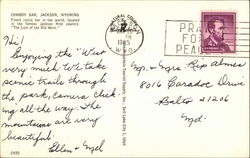 COWBOY BAR, JACKSON, WYOMING
Finest rustic bar in the world, located
in the famous Jackson Hole country
"The Last of the Old West."
Hi!
Enjoying the "West"
very much. We take
scenic trails through
the park, camera click
ing all the way. The
mountains are very
beautiful!
Ellen & Mel
1965
PRA
FOR
PEA
Mr. & Mrs Rip Almes
8016 Caradoc Drive
Balto 21206
Md.